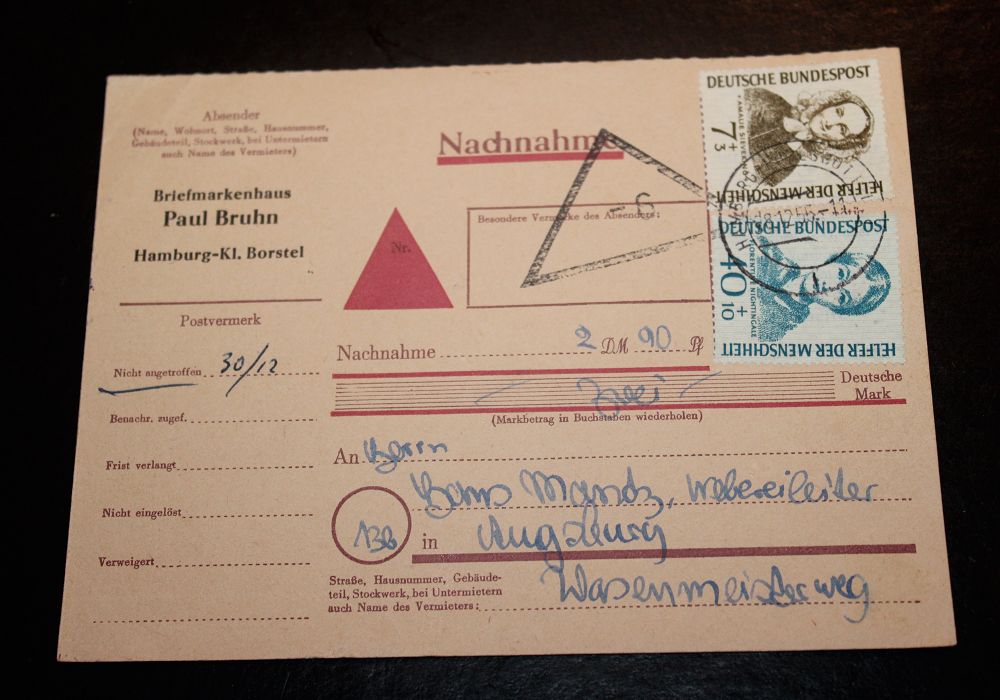 Absender
(Name, Wohnort, Straße, Hausnummer,
Gebäudeteil, Stockwerk, bei Untermietern
auch Name des Vermieters)
Briefmarkenhaus
Paul Bruhn
Hamburg-Kl. Borstel
Postvermerk
Nicht angetroffen 30/12
Benachr. zugef.
Frist verlangt
Nicht eingelöst
Verweigert
Nachnahme
Nr.
Besondere Vermerke des Absenders:
- 6
DEUTSCHE BUNDESPOST
7+3
HELFER DER MENSCHHEIT
DEUTSCHE BUNDESPOST
40+10
FLORENCE NIGHTINGALE
HELFER DER MENSCHHEIT
Nachnahme 2 DM 90 Pf
- Zwei -
Deutsche
Mark
(Markbetrag in Buchstaben wiederholen)
An Herrn
Hans Mandz, Webereileiter
13b in Augsburg
Straße, Hausnummer, Gebäude-
teil, Stockwerk, bei Untermietern
auch Name des Vermieters:
Wasenmeisterweg